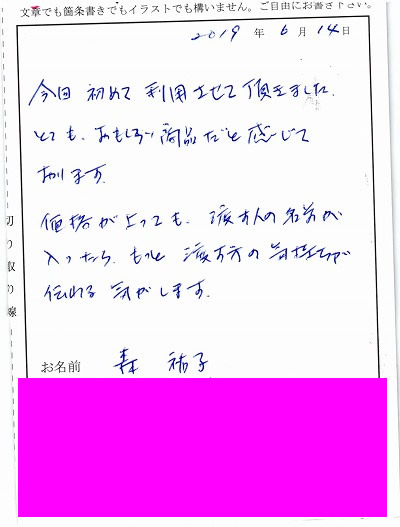 文章でも箇条書きでもイラストでも構いません。ご自由にお書き下さい。
2019 年 6 月 14 日
今回 初めて 利用させて頂きました。
とても、おもしろい商品だと感じて
おります。
価格が上っても、渡す人の名前が
入ったら、もっと 渡す方の 気持ちが
伝わる 気がします。
お名前 森 祐子
切り取り線